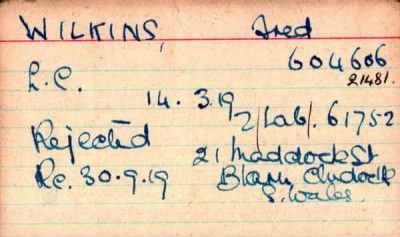 WILKINS, Fred
604606
21481.
L.C.
14. 3.19
2/Lab/. 61752
Rejected
21 Maddock St
Re. 30.9.19 Blaen Clydach
S. Wales.